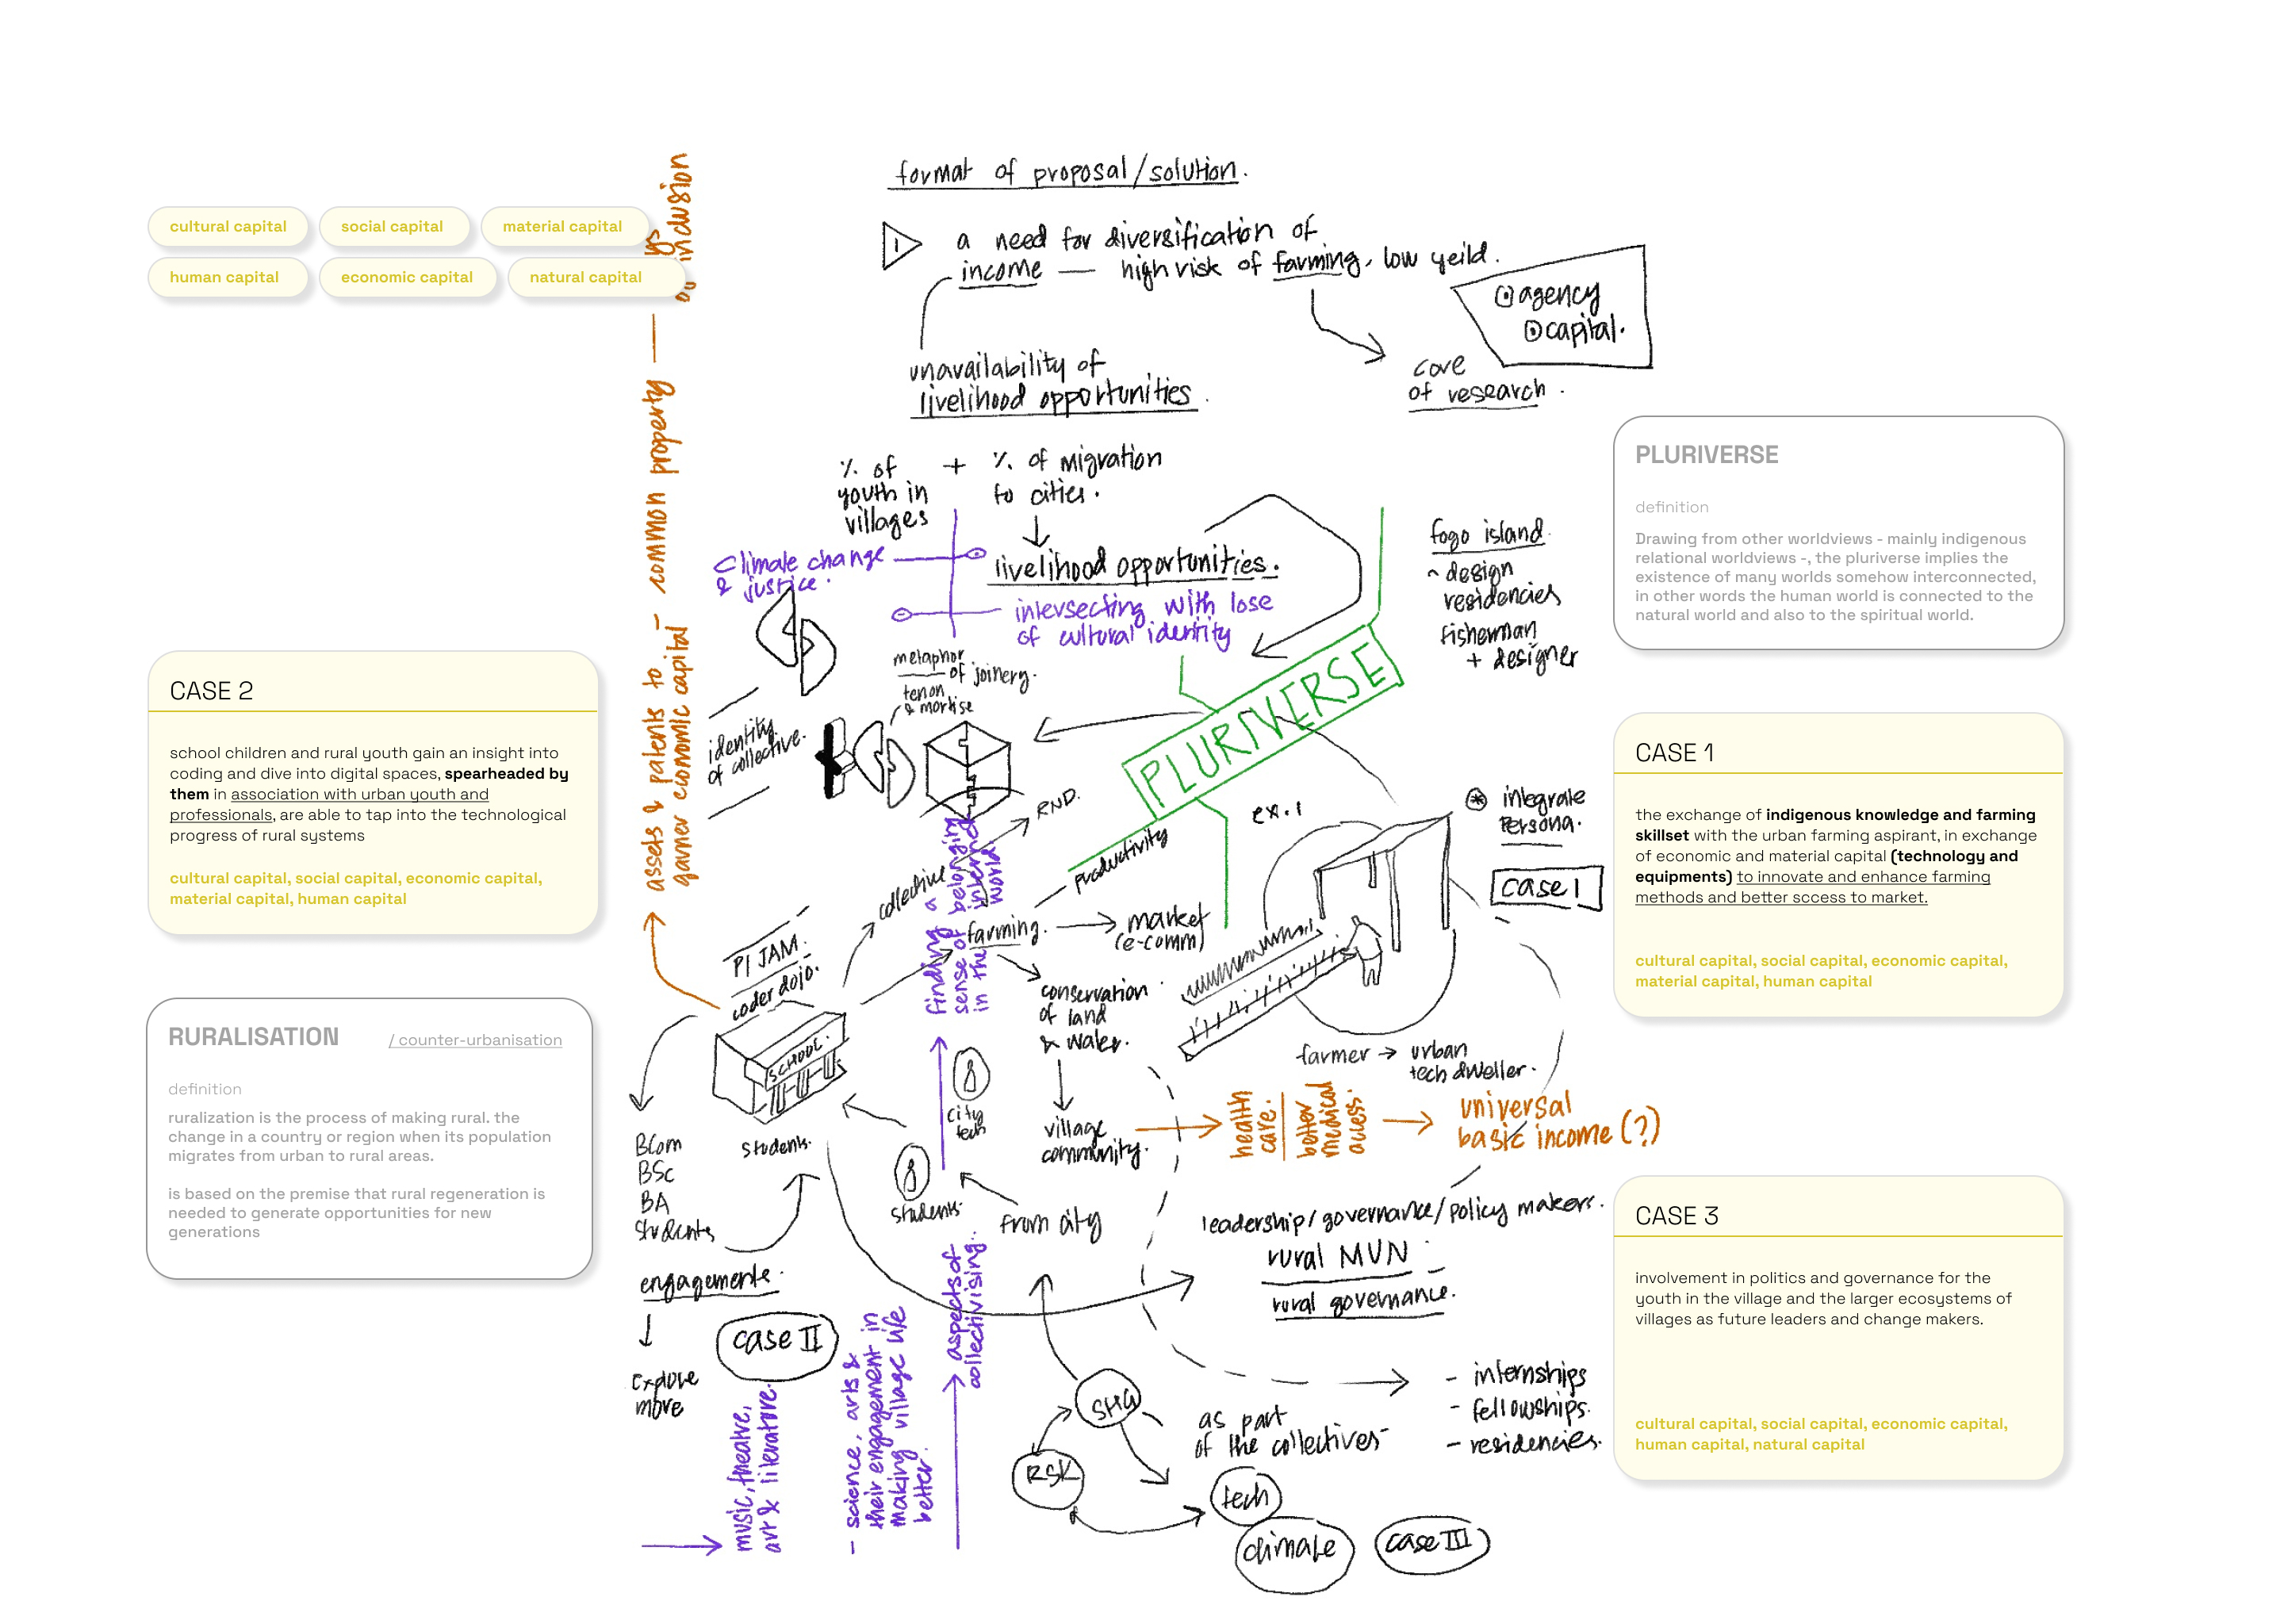 format of proposal/solution.
1
a need for diversification of
income — high risk of farming, low yeild.
agency
capital.
core
of research.
unavailability of
livelihood opportunities.
% of
youth in
villages
+
% of migration
to cities.
livelihood opportunities.
Climate change
& justice.
intersecting with lose
of cultural identity
fogo island.
~ design
residencies
fisherman
+ designer
metaphor
of joinery.
tenon
& mortise
identity
of collective.
PLURIVERSE
RND.
productivity
collective
ex.1
integrate
Persona.
case 1
farming.
market
(e-comm)
conservation
of land
& water.
village
community.
farmer → urban
tech dweller.
health
care.
better
medical
access.
universal
basic income (?)
PI JAM.
coder dojo.
SCHOOL.
students.
city
tech
students.
from city
BCom
BSc
BA
students
engagements.
explore
more
case II
music, theatre,
art & literature.
- science, arts &
their engagement in
making village life
better.
aspects of
collectivising.
finding a
sense of belonging
in the internal
world
assets & patents to — common property —
garner economic capital
inclusion
leadership/governance/policy makers.
rural MUN
rural governance.
SHG
RSK
as part
of the collectives
tech
climate
case III
- internships
- fellowships.
- residencies.
cultural capital
social capital
material capital
human capital
economic capital
natural capital
CASE 2
school children and rural youth gain an insight into
coding and dive into digital spaces, spearheaded by
them in association with urban youth and
professionals, are able to tap into the technological
progress of rural systems
cultural capital, social capital, economic capital,
material capital, human capital
RURALISATION
/ counter-urbanisation
definition
ruralization is the process of making rural. the
change in a country or region when its population
migrates from urban to rural areas.
is based on the premise that rural regeneration is
needed to generate opportunities for new
generations
PLURIVERSE
definition
Drawing from other worldviews - mainly indigenous
relational worldviews -, the pluriverse implies the
existence of many worlds somehow interconnected,
in other words the human world is connected to the
natural world and also to the spiritual world.
CASE 1
the exchange of indigenous knowledge and farming
skillset with the urban farming aspirant, in exchange
of economic and material capital (technology and
equipments) to innovate and enhance farming
methods and better sccess to market.
cultural capital, social capital, economic capital,
material capital, human capital
CASE 3
involvement in politics and governance for the
youth in the village and the larger ecosystems of
villages as future leaders and change makers.
cultural capital, social capital, economic capital,
human capital, natural capital